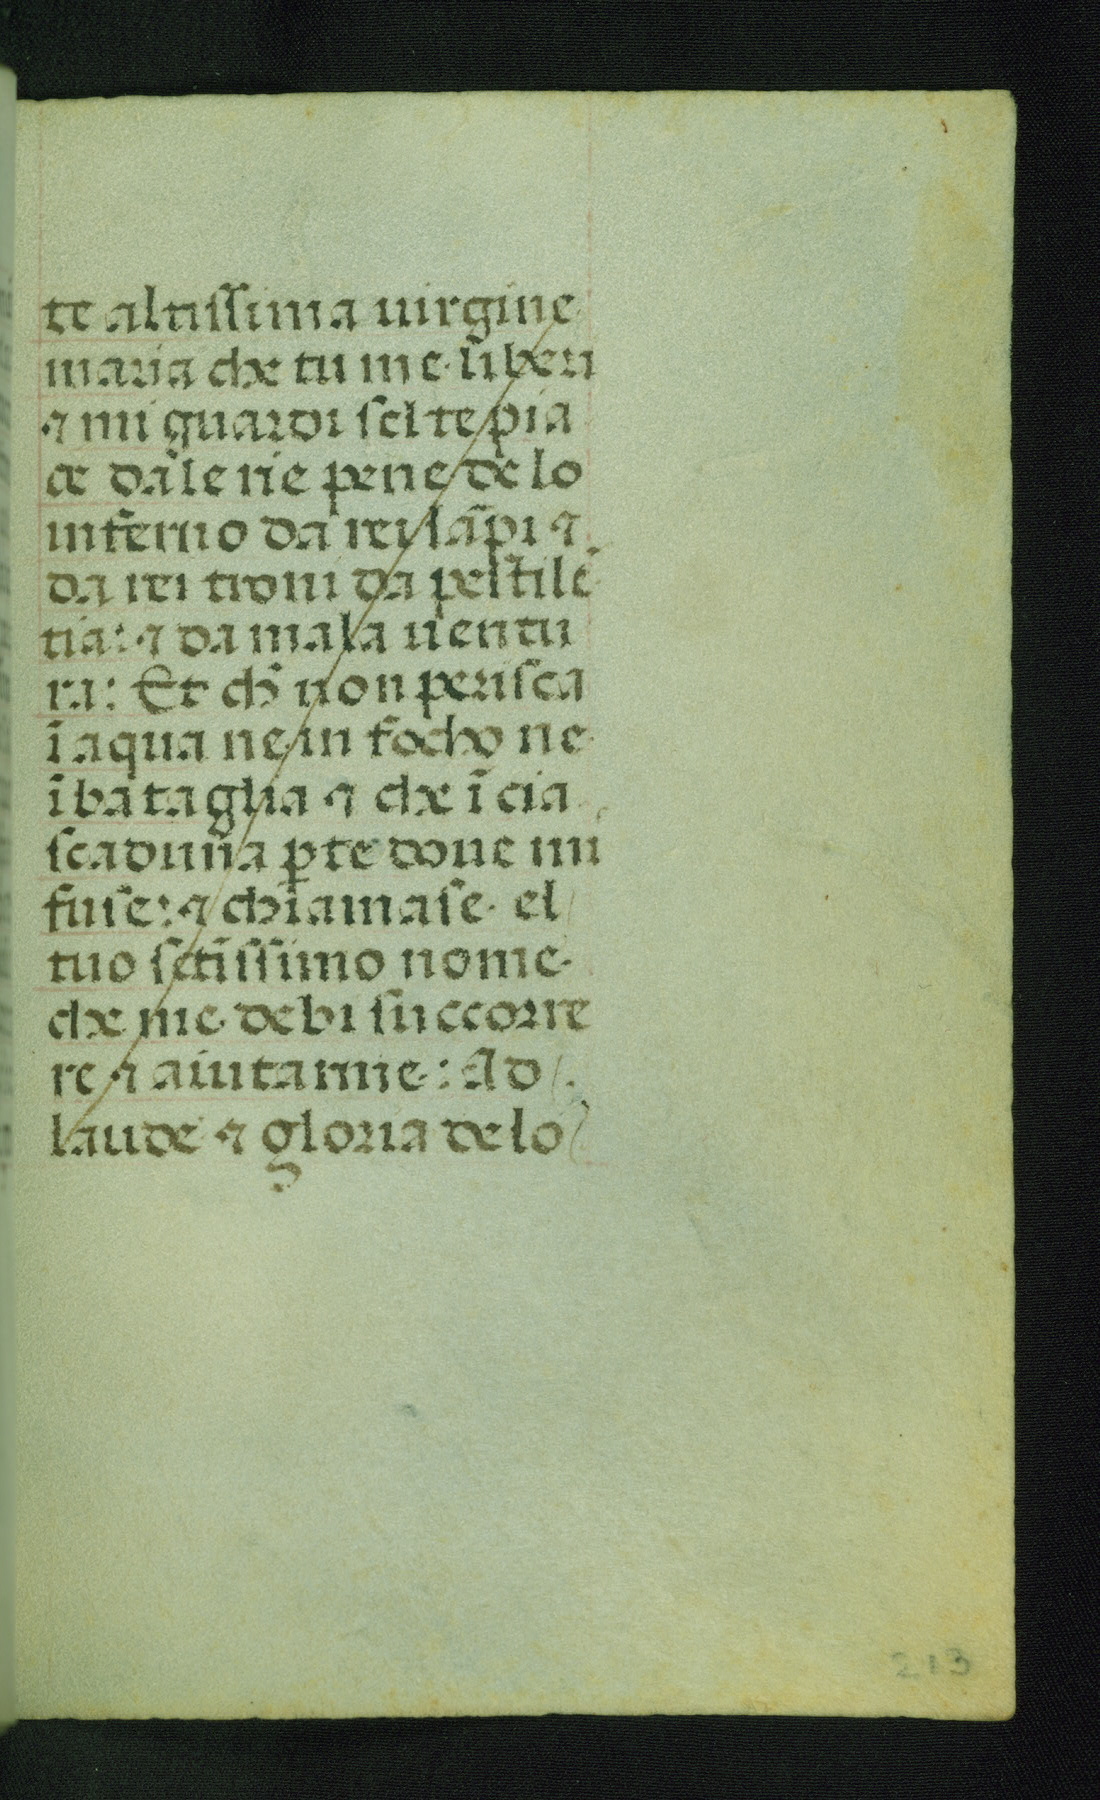 te altissima uirgine
maria che tu me liberi
⁊ mi guardi sel te pia
ce da le rie pene de lo
inferno da rei lāpi ⁊
da rei troni da pestilē
tia: ⁊ da mala uentu
ra: Et ch̄ non perisca
ī aqua ne in focho ne
ī bataglia ⁊ che ī cia
scaduna ꝑte doue mi
fuse: ⁊ chiamase el
tuo sctīssimo nome
che me debi succorre
re ⁊ aiutarme: Ad
laude ⁊ gloria de lo
213